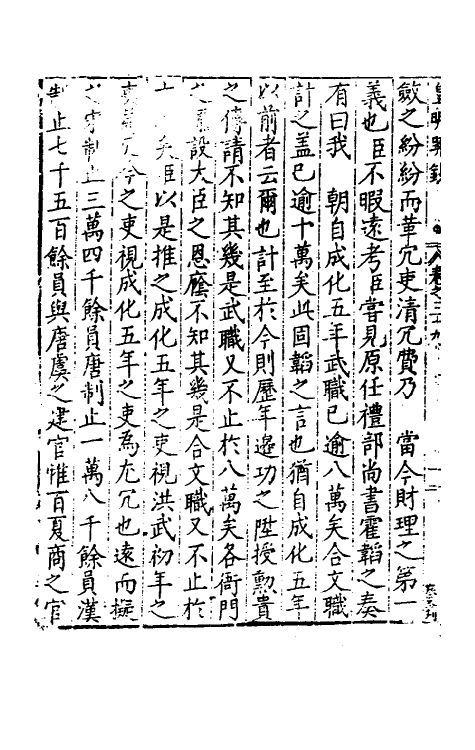 皇明
卷之三
歛之紛紛而革冗吏清冗費乃　當今財理之第一
義也臣不暇遠考臣嘗見原任禮部尚書霍韜之奏
有曰我　朝自成化五年武職已逾八萬矣合文職
計之盖已逾十萬矣此固韜之言也猶自成化五年
以前者云爾也計至於今則歷年邊功之陞授勲貴
之傳請不知其幾是武職又不止於八萬矣各衙門
設大臣之恩廕不知其幾是合文職又不止於
十萬矣臣以是推之成化五年之吏視洪武初年之
今之吏視成化五年之吏為尤冗也遠而擬
之宋制止三萬四千餘員唐制止一萬八千餘員漢
制止七千五百餘員與唐虞之建官惟百夏商之官